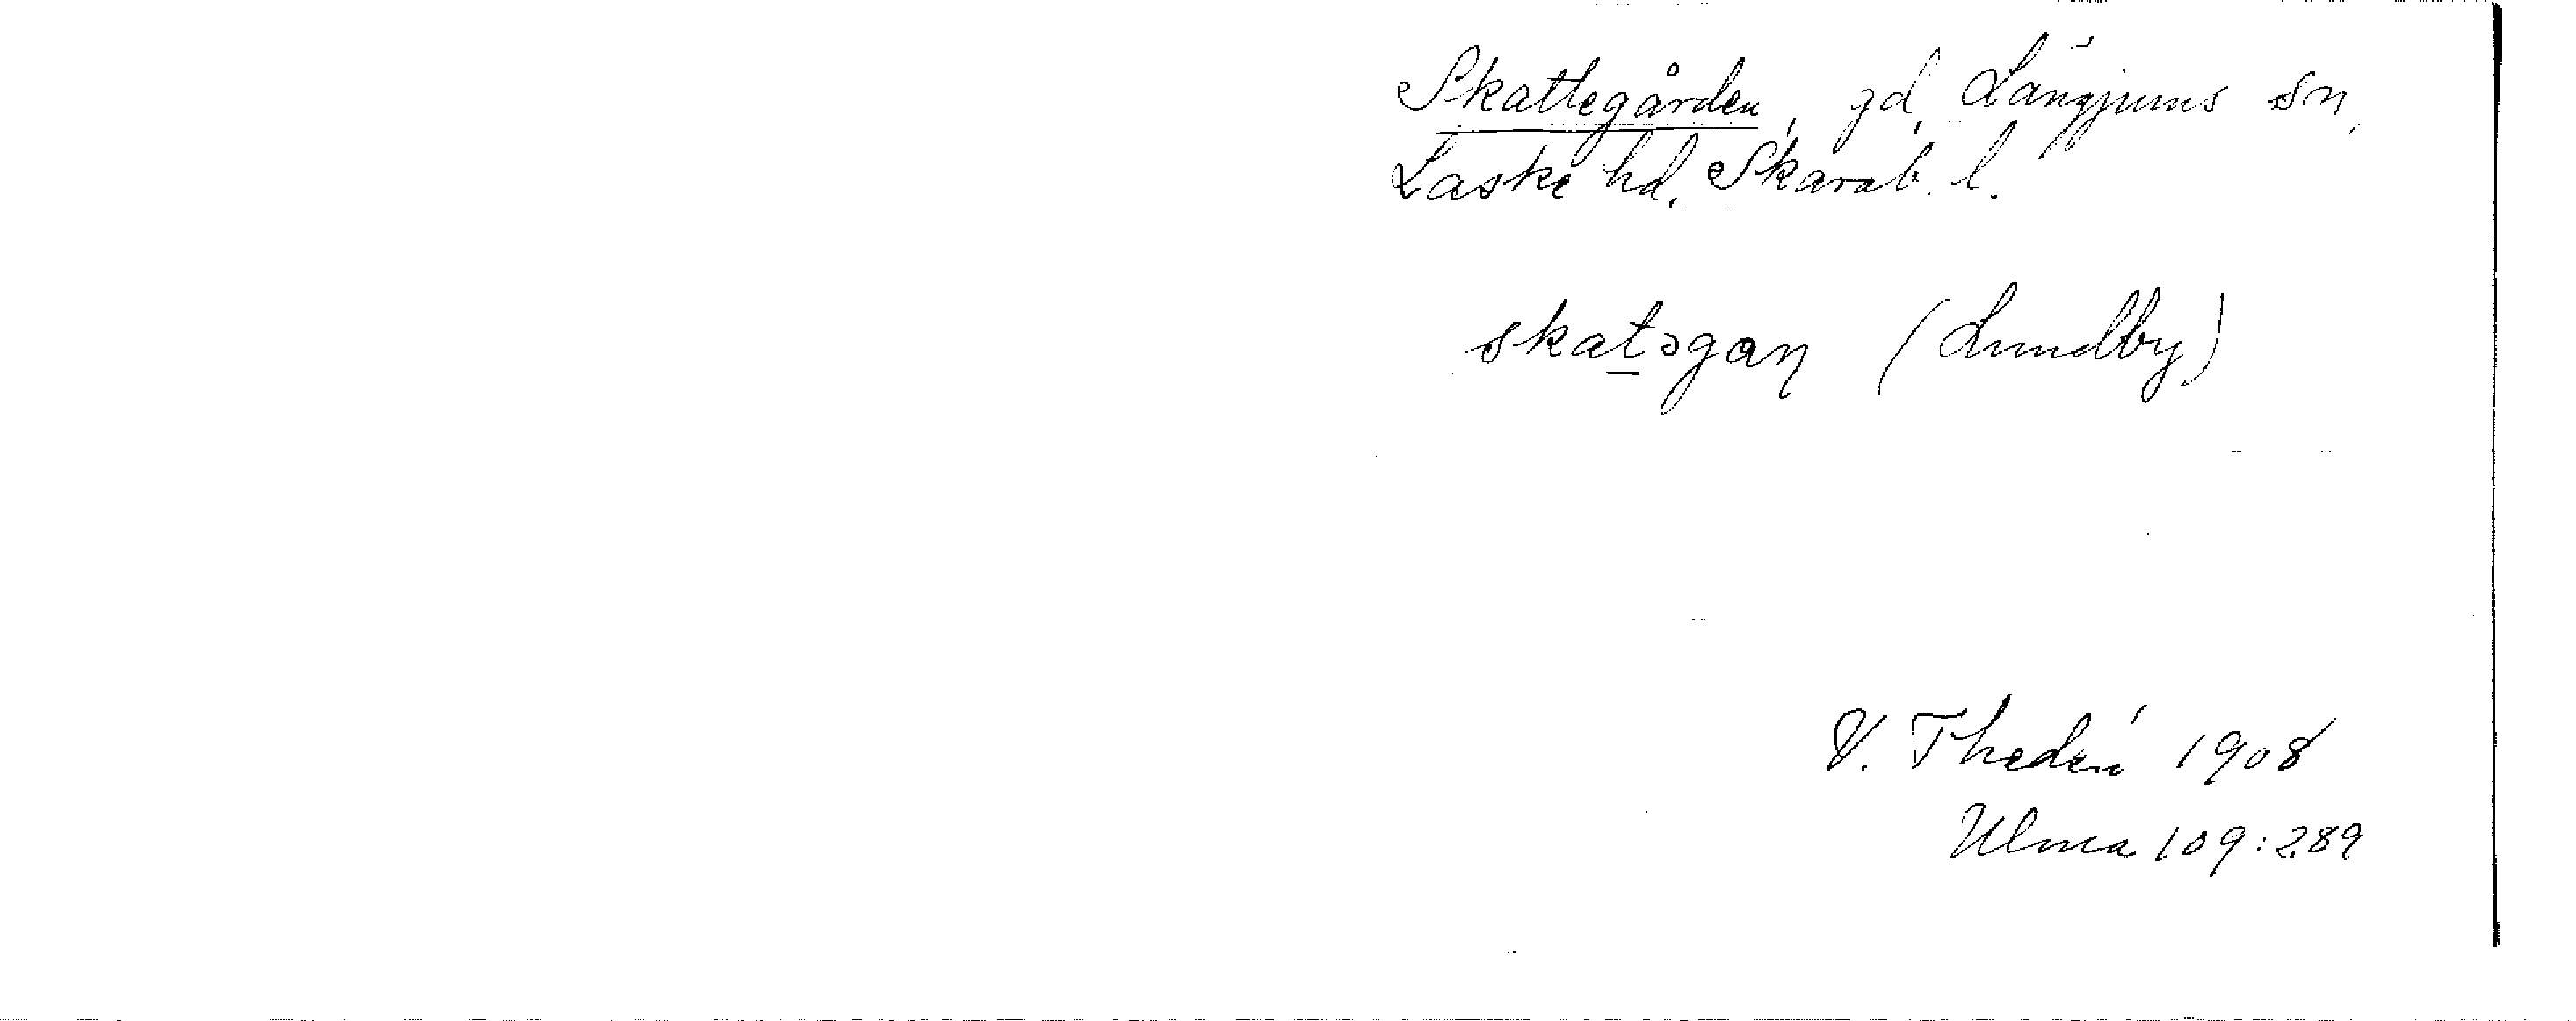 Skattegården, gd, Längjums sn,
Laske hd, Skarab. l.
skatəgaɳ (Lundby)
V. Thedén 1908
Ulma 109:289